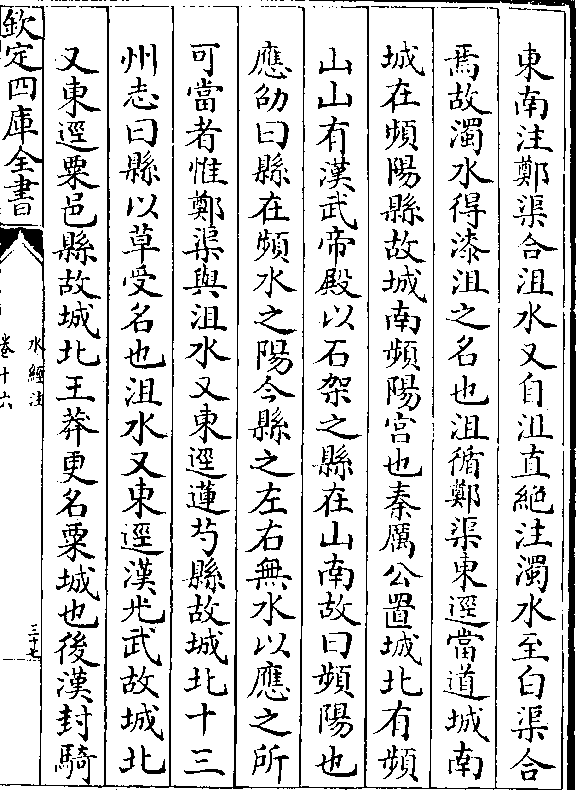 東南注鄭渠合沮水又自沮直絶注濁水至白渠合
焉故濁水得漆沮之名也沮循鄭渠東逕當道城南
城在頻陽縣故城南頻陽宫也秦厲公置城北有頻
山山有漢武帝殿以石架之縣在山南故曰頻陽也
應劭曰縣在頻水之陽今縣之左右無水以應之所
可當者惟鄭渠與沮水又東逕蓮芍縣故城北十三
州志曰縣以草受名也沮水又東逕漢光武故城北
又東逕粟邑縣故城北王莽更名粟城也後漢封騎
欽定四庫全書
水經注
卷十六
三十七